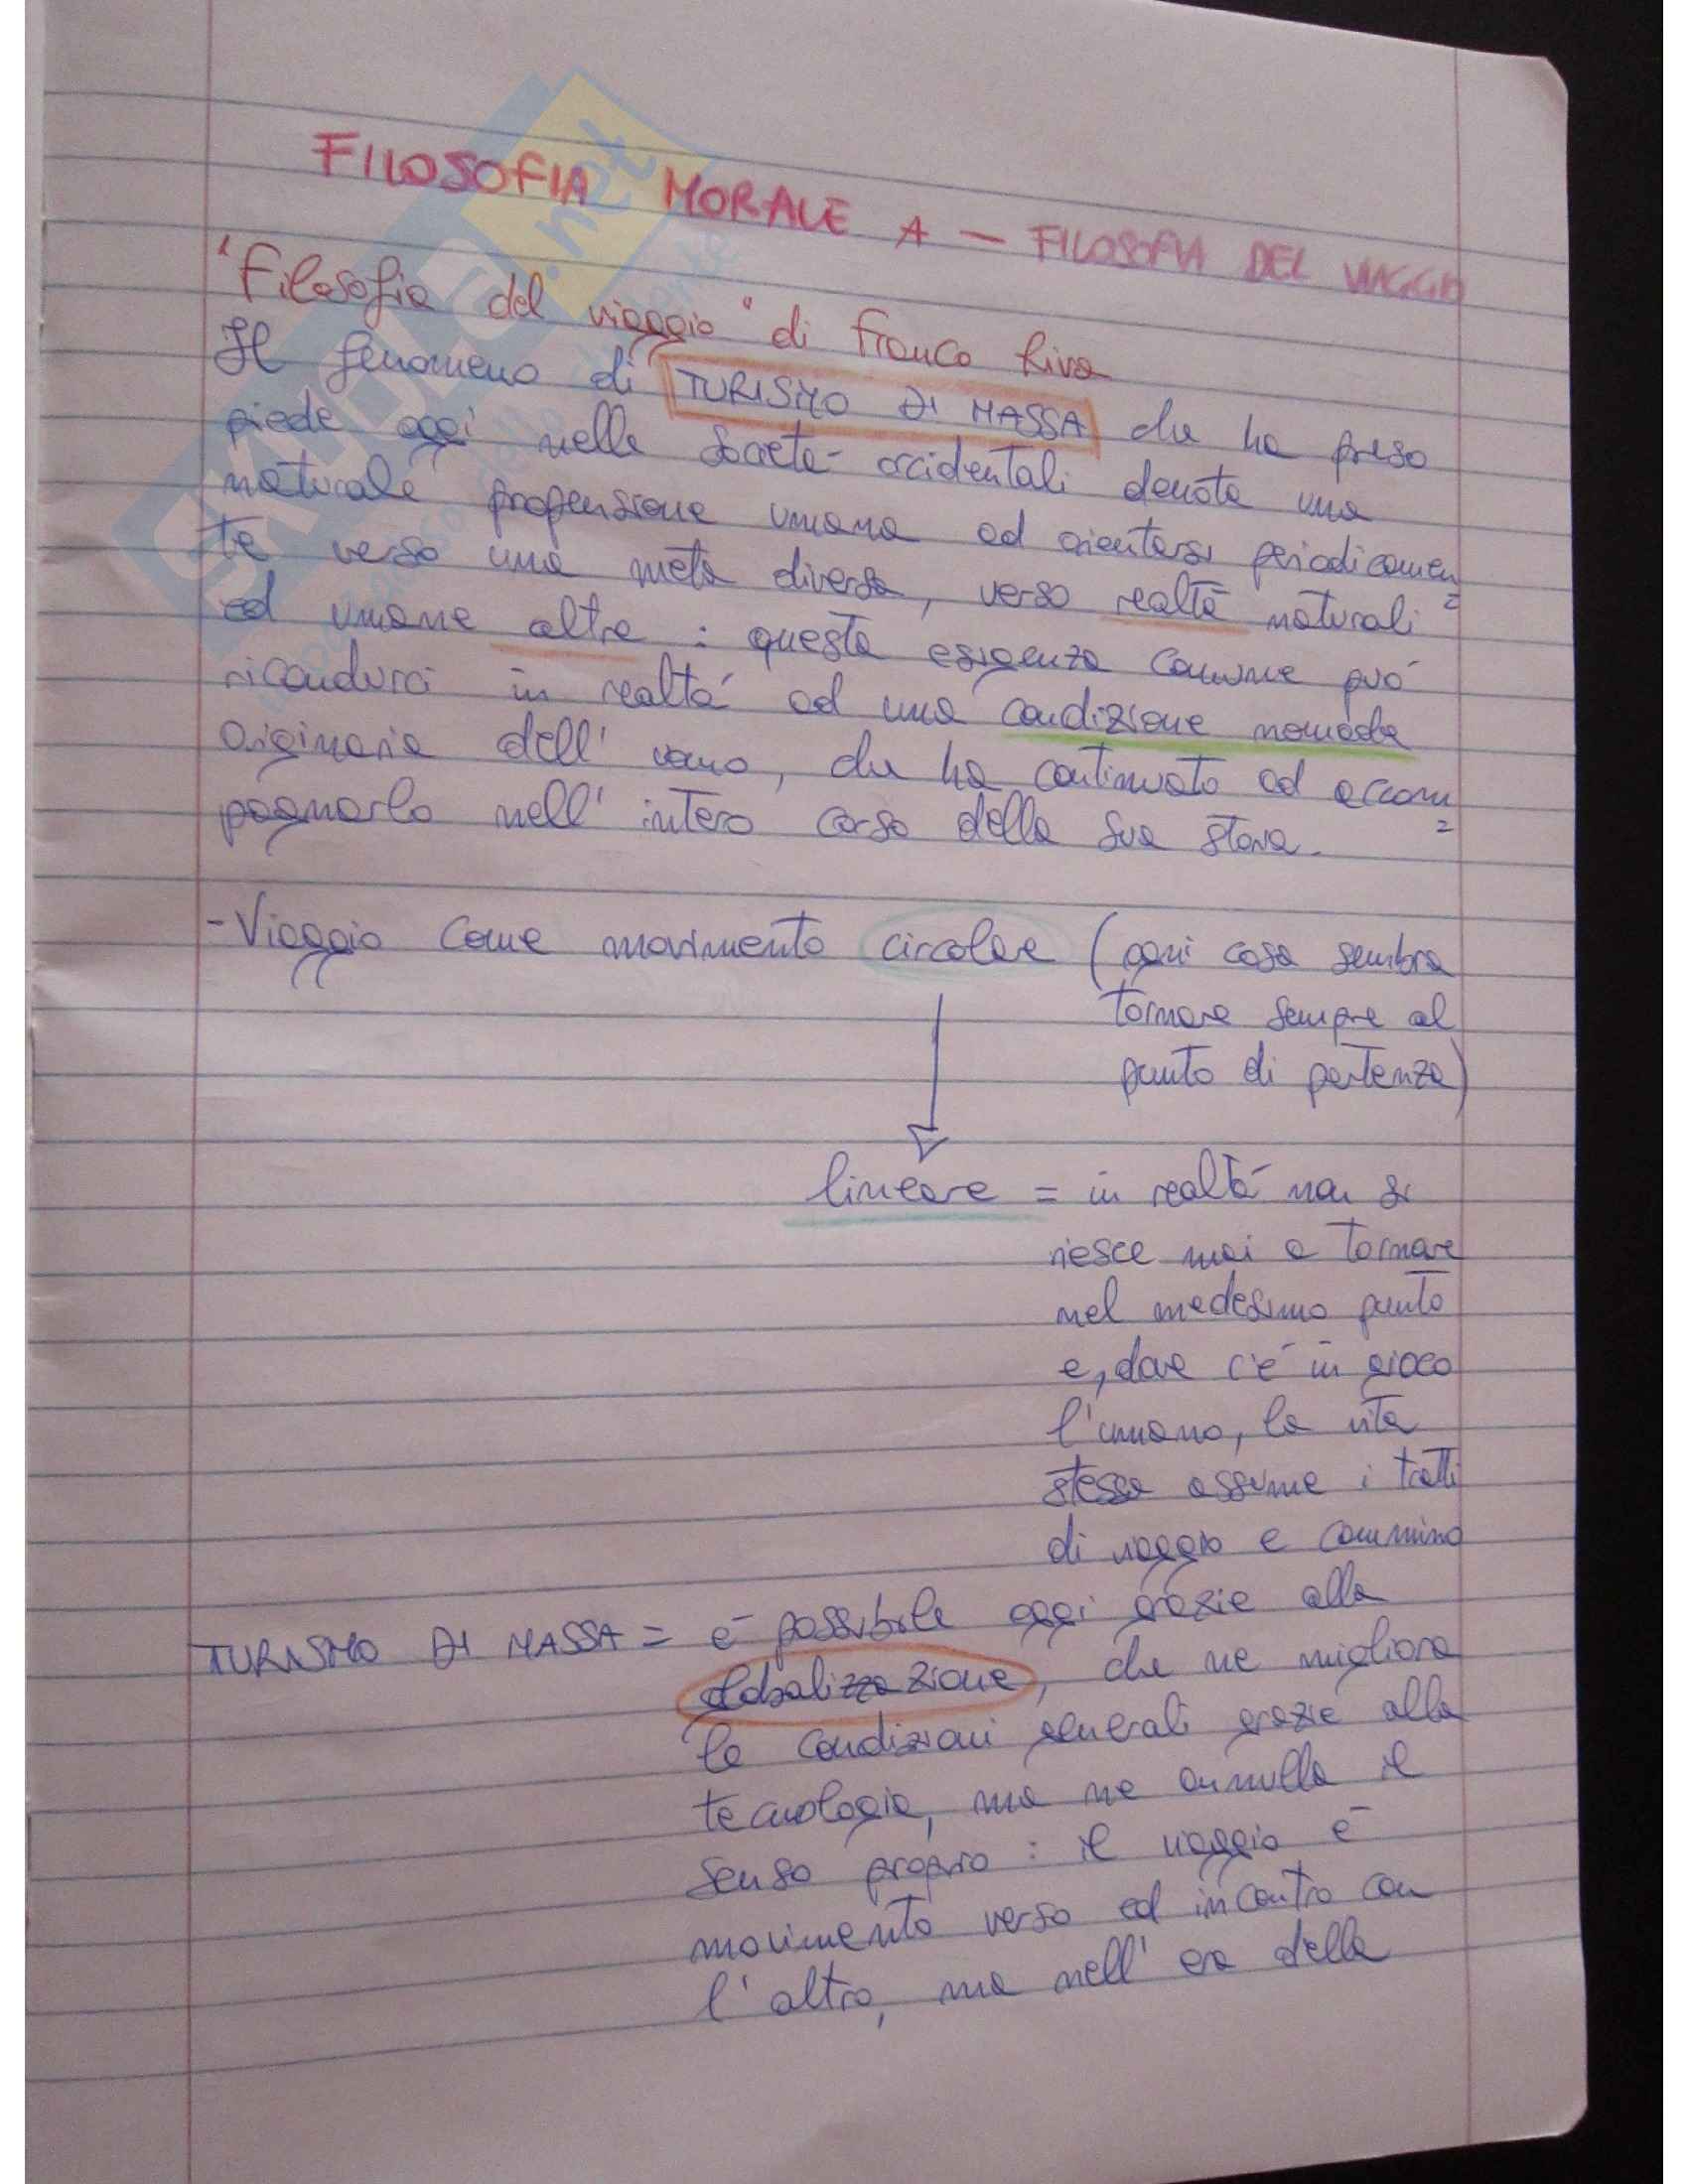 FILOSOFIA MORALE A - FILOSOFIA DEL VIAGGIO
"Filosofia del viaggio" di Franco Riva
Il fenomeno di TURISMO DI MASSA che ha preso
piede oggi nelle società occidentali denota una
naturale propensione umana ad orientarsi periodicamen=
te verso una meta diversa, verso realtà naturali
ed umane altre: questa esigenza comune può
ricondurci in realtà ad una condizione nomade
originaria dell'uomo, che ha continuato ad accom=
pagnarlo nell'intero corso della sua storia.
- Viaggio come movimento circolare (ogni cosa sembra
tornare sempre al
punto di partenza)
lineare = in realtà non si
riesce mai a tornare
nel medesimo punto
e, dove c'è in gioco
l'umano, la vita
stessa assume i tratti
di viaggio e cammino
TURISMO DI MASSA = è possibile oggi grazie alla
globalizzazione, che ne migliora
le condizioni generali grazie alla
tecnologia, ma ne annulla il
senso proprio: il viaggio è
movimento verso ed incontro con
l'altro, ma nell'era della
SKUOLA.net